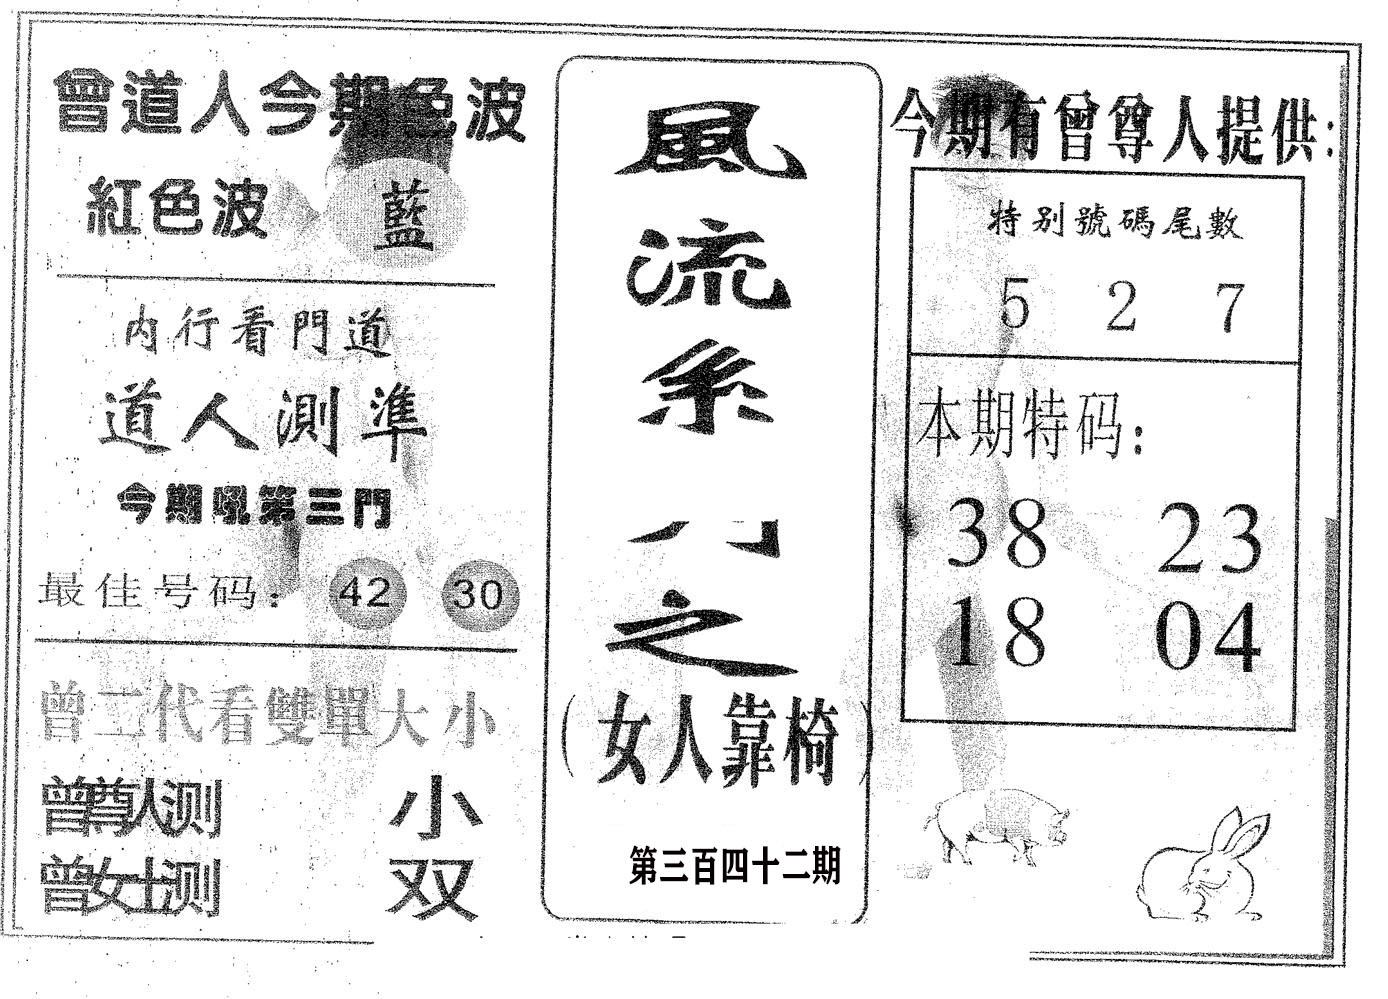 曾道人今期色波
紅色波 藍
内行看門道
道人測準
今期吼第三門
最佳号码: 42 30
曾二代看雙單大小
曾尊人测 小
曾女士测 双
風
流
系
之
(女人靠椅)
第三百四十二期
今期有曾尊人提供:
特别號碼尾數
5 2 7
本期特码:
38 23
18 04